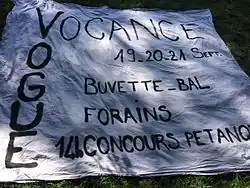 VOGUE
VOCANCE
19-20-21 Sept.
BUVETTE-BAL
FORAINS
14h CONCOURS PETANQ